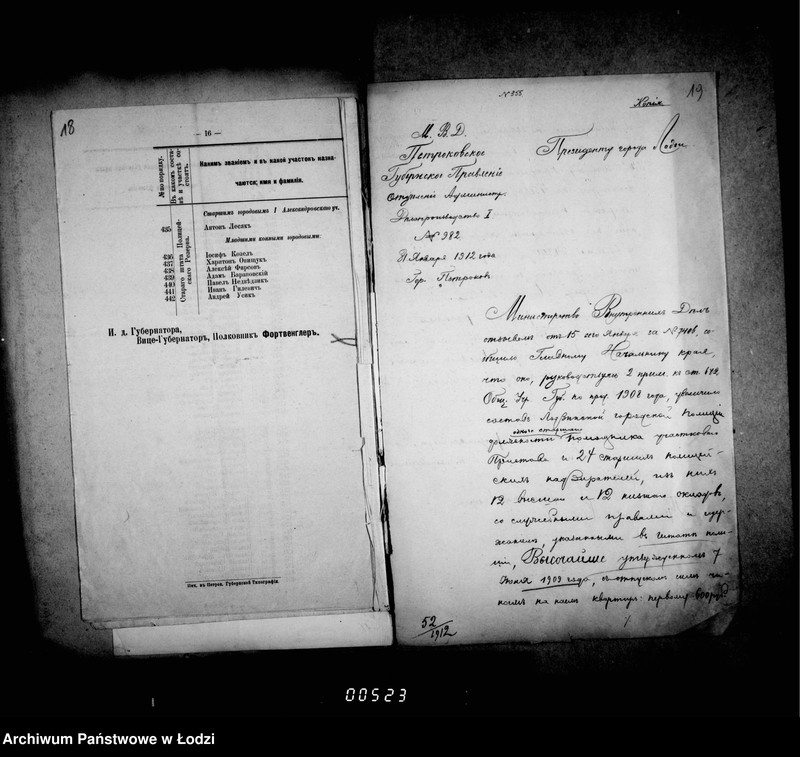 18
— 16 —
№ по порядку.
Въ какомъ составѣ и участкѣ состоятъ.
Какимъ званіемъ и въ какой участокъ назначаются; имя и фамилія.
Стараго штата Полицейскаго Резерва.
Старшимъ городовымъ I Александровскаго уч.
435 Антонъ Лесякъ
Младшими конными городовыми:
436 Іосифъ Козелъ
437 Харитонъ Онищукъ
438 Алексѣй Фирсовъ
439 Адамъ Барановскій
440 Павелъ Недвѣдзикъ
441 Иванъ Гилевичъ
442 Андрей Усикъ
И. д. Губернатора,
Вице-Губернаторъ, Полковникъ Фортвенглеръ.
Печ. въ Петрок. Губернской Типографіи.
№ 255
19
Копія
М. В. Д.
Петроковское
Губернское Правленіе
Отдѣленіе Администр.
Дѣлопроизводство I
№ 982
31 Января 1912 года
Гор. Петроковъ
Президенту города Лодзи
Министерство Внутреннихъ Дѣлъ
отзывомъ отъ 15 сего Января за № 7408, со-
общило Главному Начальнику края,
что оно, руководствуясь 2 прим. къ ст. 642
Общ. Учр. Губ. по прод. 1908 года, увеличило
составъ Лодзинской городской полиціи
одного старшаго
должности помощника участковаго
Пристава и 24 старшихъ полицей-
скихъ надзирателей, изъ нихъ
12 высшаго и 12 низшаго окладовъ,
со служебными правами и содер-
жаніемъ, указанными въ штатѣ поли-
ціи, Высочайше утвержденномъ 7
1909 года, съ отпускомъ симъ чи-
намъ на наемъ квартиръ: первому 600 руб
52/1912
00523
Archiwum Państwowe w Łodzi